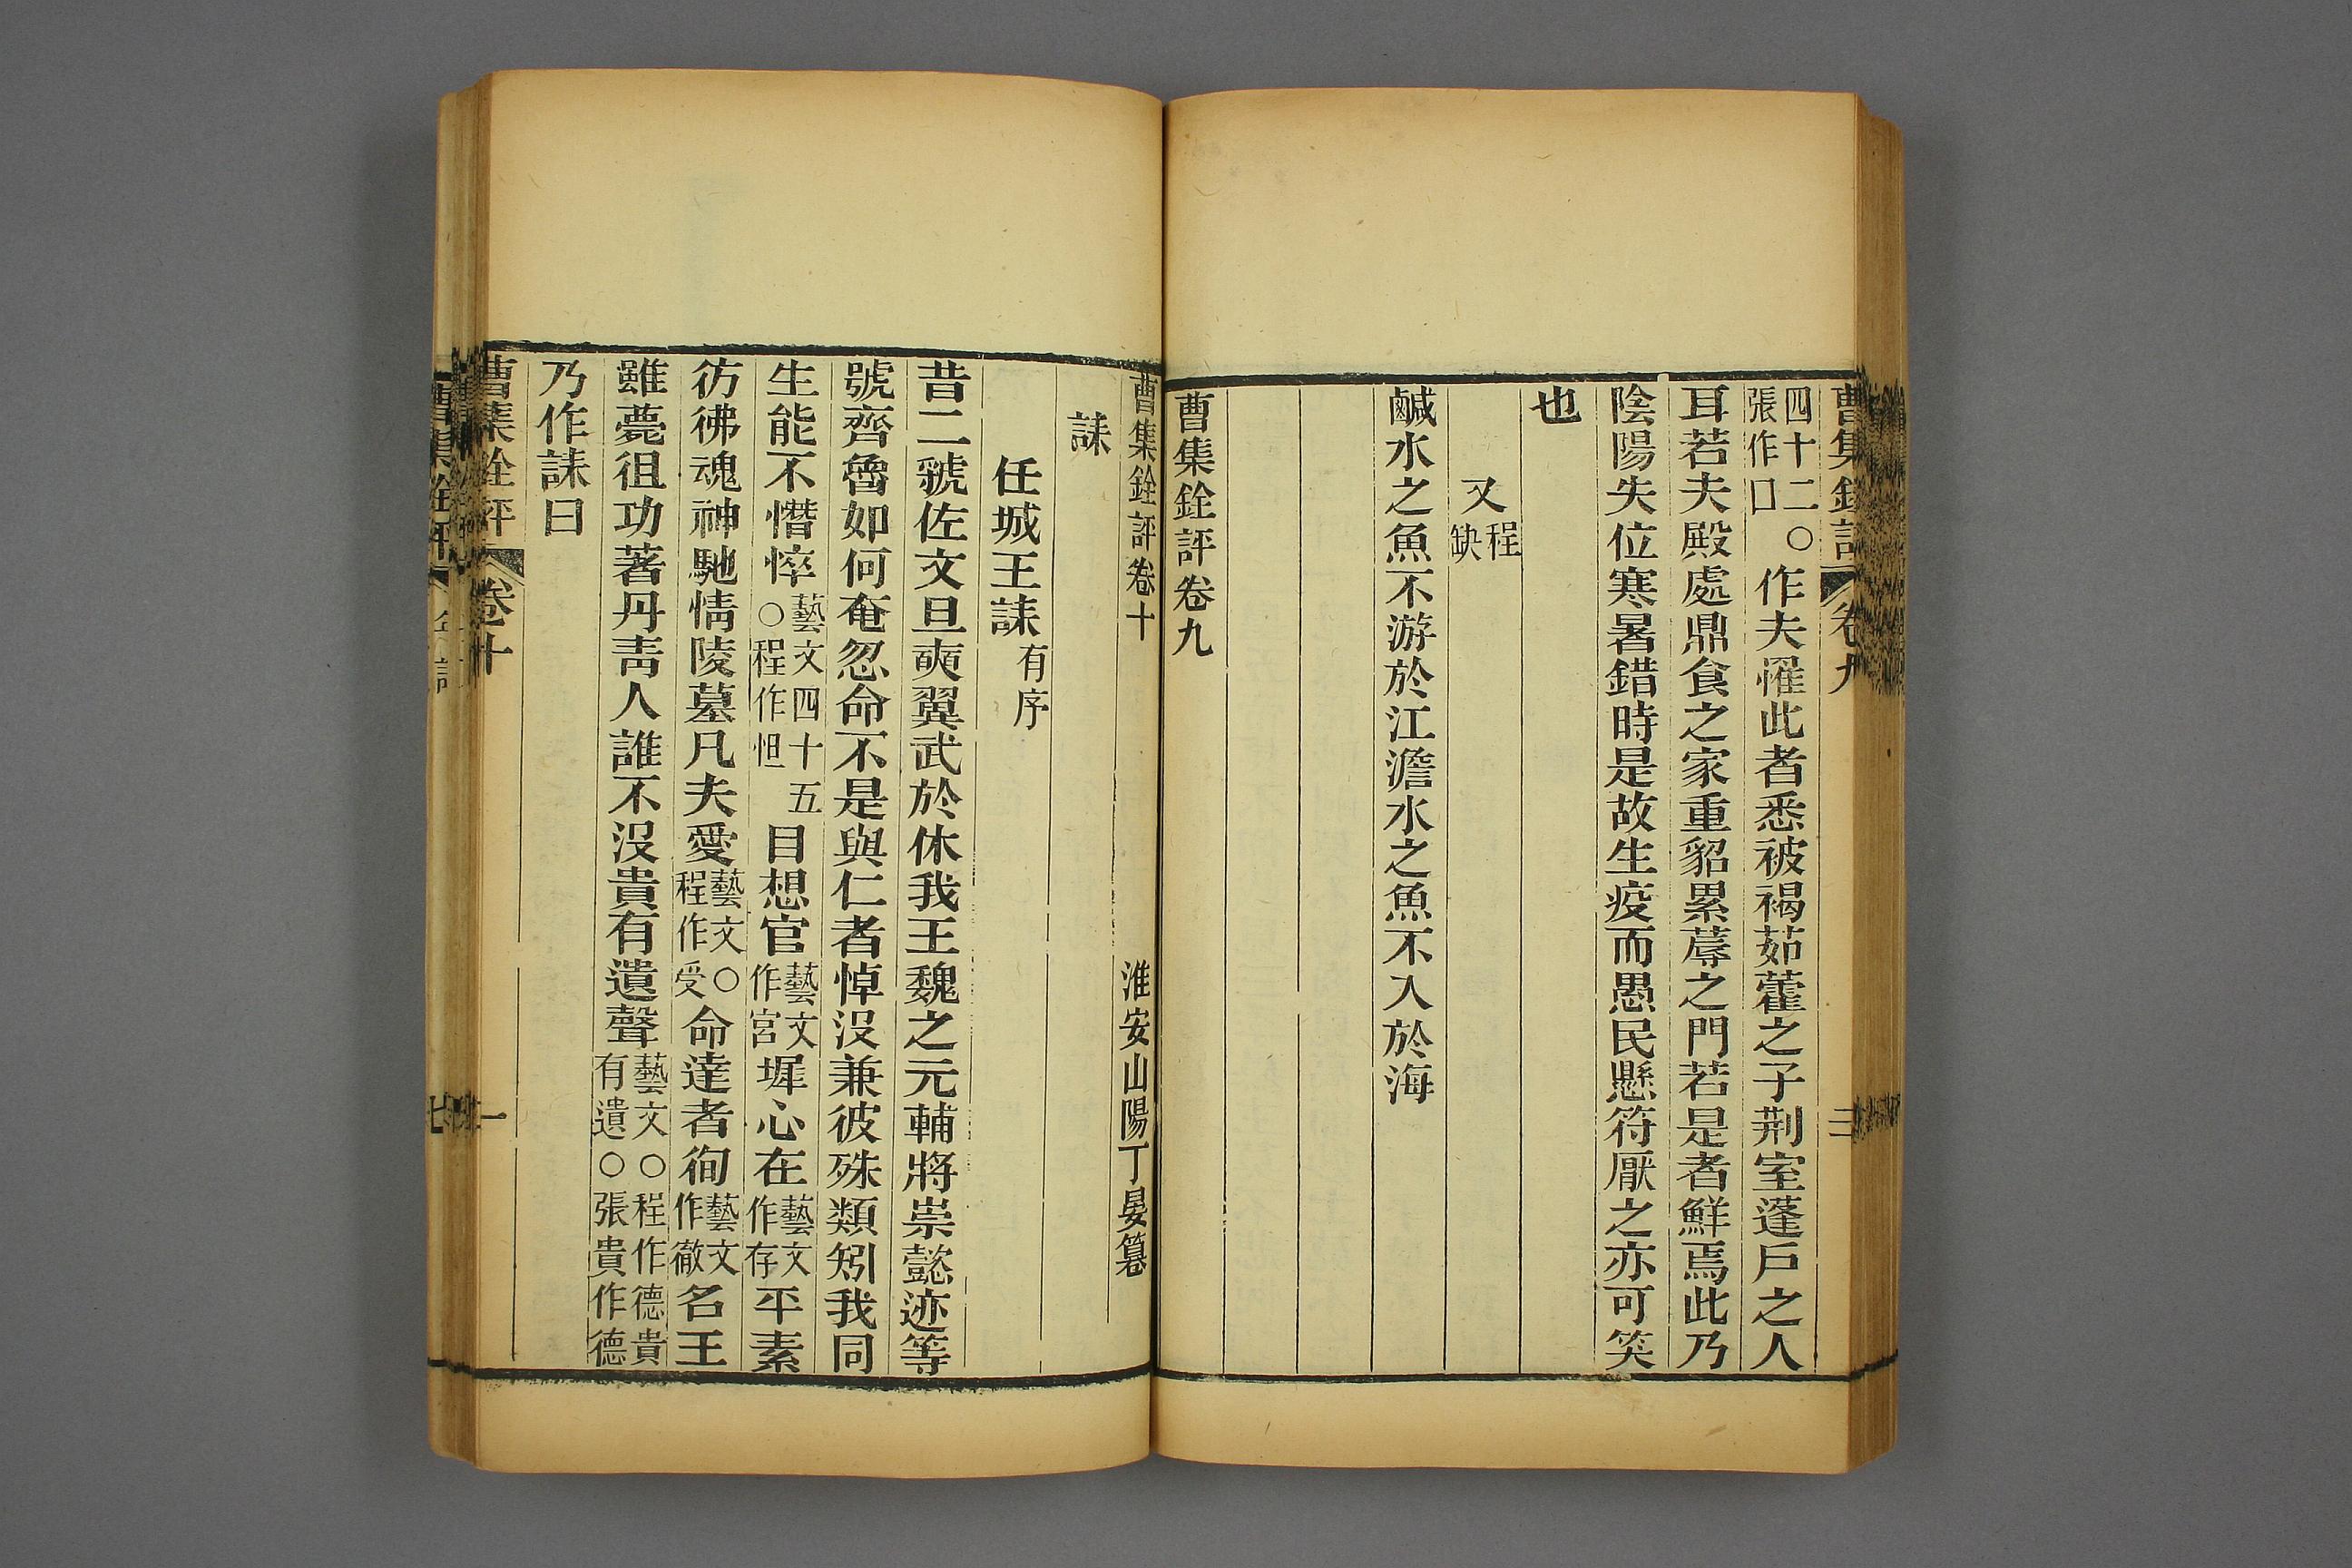 曹集銓評 卷九 三
四十二○張作口作夫罹此者悉被褐茹藿之子荆室蓬戶之人
耳若夫殿處鼎食之家重貂累蓐之門若是者鮮焉此乃
陰陽失位寒暑錯時是故生疫而愚民懸符厭之亦可笑
也
又程缺
鹹水之魚不游於江澹水之魚不入於海
曹集銓評卷九
曹集銓評卷十 淮安山陽丁晏篹
誄
任城王誄有序
昔二虢佐文旦奭翼武於休我王魏之元輔將崇懿迹等
號齊魯如何奄忽命不是與仁者悼沒兼彼殊類矧我同
生能不憯悴藝文四十五○程作怛目想官藝文作宮墀心在藝文作存平素
彷彿魂神馳情陵墓凡夫愛藝文○程作受命達者徇藝文作徹名王
雖薨徂功著丹靑人誰不沒貴有遺聲藝文○程作德貴有遺○張貴作德
乃作誄曰
曹集銓評 卷十 一
曹集銓評